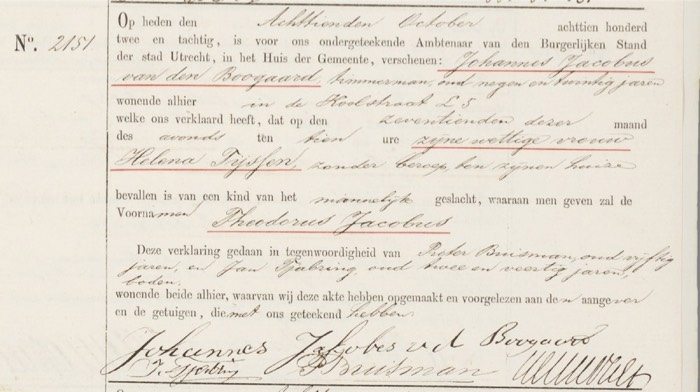 Op heden den Achttienden October achttien honderd
Nº. 2151 twee en tachtig, is voor ons ondergeteekende Ambtenaar van den Burgerlijken Stand
der stad Utrecht, in het Huis der Gemeente, verschenen: Johannes Jacobus
van den Boogaard, timmerman, oud negen en twintig jaren
wonende alhier in de Koolstraat L 5
welke ons verklaard heeft, dat op den zeventienden dezer maand
des avonds ten tien ure zijne wettige vrouw
Helena Tijssen, zonder beroep, ten zijnen huize
bevallen is van een kind van het mannelijk geslacht, waaraan men geven zal de
Voornamen Theodorus Jacobus
Deze verklaring gedaan in tegenwoordigheid van Pieter Buisman, oud vijftig
jaren, en Jan Tjabring oud twee en veertig jaren,
boden.
wonende beide alhier, waarvan wij deze akte hebben opgemaakt en voorgelezen aan den aangever
en de getuigen, die met ons geteekend hebben.
Johannes Jacobes v d Boogaard
P Buisman